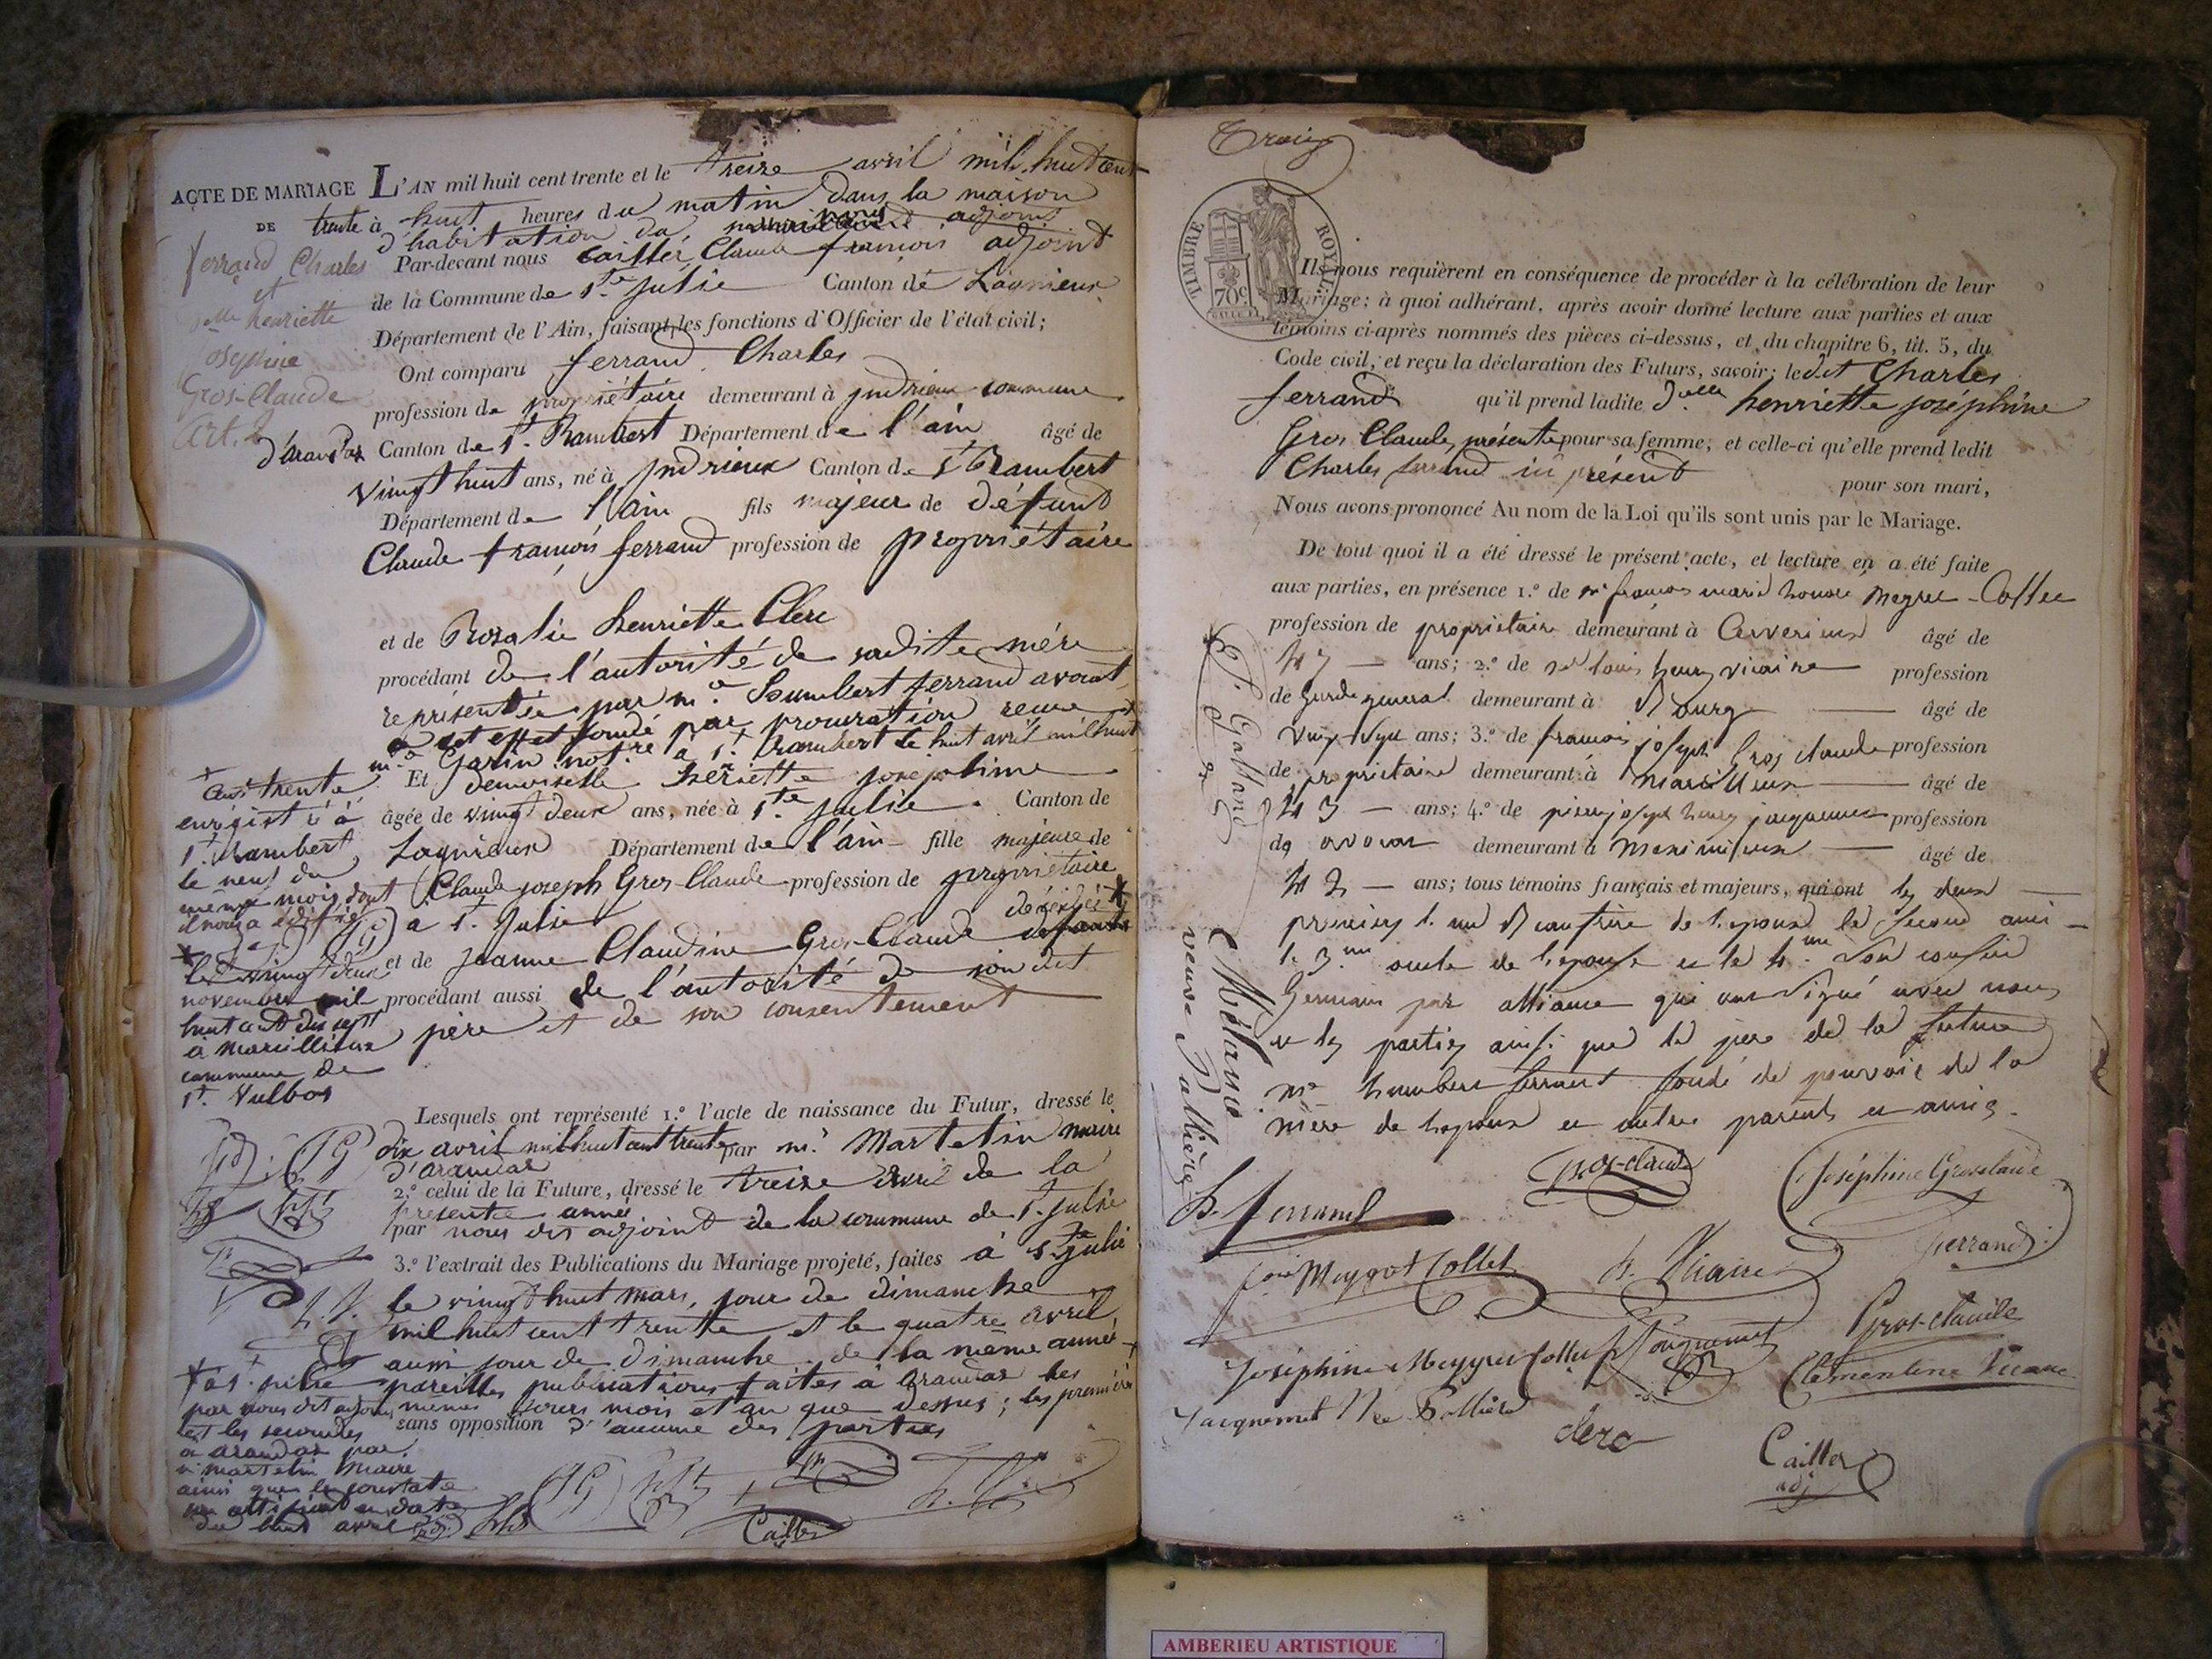 ACTE DE MARIAGE
DE
ferrand Charles
et
henriette
Gros-Claude
Art. 2
L'AN mil huit cent trente et le treize avril mil huit cent
trente à huit heures du matin dans la maison
d'habitation du nous adjoint
Par-devant nous Caillez Claude françois adjoint
de la Commune de Ste. Julie Canton de Lagnieux
Département de l'Ain, faisant les fonctions d'Officier de l'état civil;
Ont comparu ferrand Charles
profession de propriétaire demeurant à indrieux commune
d'arandas Canton de St. Rambert Département de l'ain âgé de
vingt huit ans, né à indrieux Canton de St. Rambert
Département de l'ain fils majeur de défunt
Claude françois ferrand profession de propriétaire
et de Rosalie henriette Clerc
procédant de l'autorité de sadite mère
représentée par m.e humbert ferrand avocat
a cet effet fondé par procuration recue
m.e Garin not.re a St. Rambert le huit avril mil huit
cent trente
enregistré à
St. Rambert
le neuf du
même mois dont
il nous a
Et demoiselle henriette josephine
âgée de vingt deux ans, née à Ste. julie Canton de
Lagnieux Département de l'ain fille majeure de
Claude joseph Gros-Claude profession de propriétaire
a Ste. julie
et de jeanne Claudine Gros-Claude décédée
le vingt deux
novembre mil
huit cent dix sept
à marcillieux
commune de
St. Vulbas
procédant aussi de l'autorité de son dit
père et de son consentement
Lesquels ont représenté 1.º l'acte de naissance du Futur, dressé le
dix avril mil huit cent trente par m.r Martetin maire
d'arandas
2.º celui de la Future, dressé le treize avril de la
présente année
par nous dit adjoint de la commune de Ste. julie
3.º l'extrait des Publications du Mariage projeté, faites à Ste. julie
le vingt huit mars, jour de dimanche
mil huit cent trente et le quatre avril
aussi jour de dimanche de la même année
pareilles publications faites à arandas les
mêmes jours mois et an que dessus; les premières
sans opposition d'aucune des parties
a Ste. julie
par nous dit adjoint
et les secondes
a arandas par
m. martetin maire
ainsi que le constate
en date
du huit avril
Caillez
Trois
TIMBRE ROYAL
70c
Ils nous requièrent en conséquence de procéder à la célébration de leur
Mariage; à quoi adhérant, après avoir donné lecture aux parties et aux
témoins ci-après nommés des pièces ci-dessus, et du chapitre 6, tit. 5, du
Code civil, et reçu la déclaration des Futurs, savoir; ledit Charles
ferrand qu'il prend ladite d.elle henriette joséphine
Gros Claude, présente pour sa femme; et celle-ci qu'elle prend ledit
Charles ferrand ici présent pour son mari,
Nous avons prononcé Au nom de la Loi qu'ils sont unis par le Mariage.
De tout quoi il a été dressé le présent acte, et lecture en a été faite
aux parties, en présence 1.º de mr françois marie honoré Collet
profession de propriétaire demeurant à âgé de
47 ans; 2.º de mr louis henry vicaire profession
de garde general demeurant à Bourg âgé de
vingt sept ans; 3.º de françois joseph Gros claude profession
de propriétaire demeurant à marcillieux âgé de
43 ans; 4.º de pierre joseph henry jacquemet profession
de avocat demeurant à meximieux âgé de
42 ans; tous témoins français et majeurs, qui ont les deux
premiers l'un Beaufrère de l'epoux le second ami
le 3.me oncle de l'epouse et le 4.me son cousin
Germain par alliance qui ont signé avec nous
et les parties ainsi que le père de la future
m.e humbert ferrand fondé de pouvoir de la
mère de l'epoux et autres parents et amis.
Galland
Mélanie
veuve
Gros-claude
Joséphine Grosclaude
h. ferrand
Ferrand
Collet
h. Vicaire
Gros-claude
Joséphine Collet
Jacquemet
Clémentine Vicaire
Jacquemet Née
clerc
Caillez
adj
AMBERIEU ARTISTIQUE